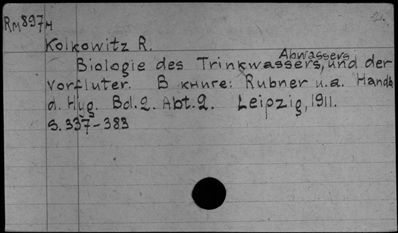 Rm897н
Kolkowitz R.
Abwassers
Biologie des Trinkwassers, und der
Vorfluter. В книге: Rubner u.a. Handb
d. Hyg. Bd.2. Abt.2. Leipzig, 1911.
S.337-383